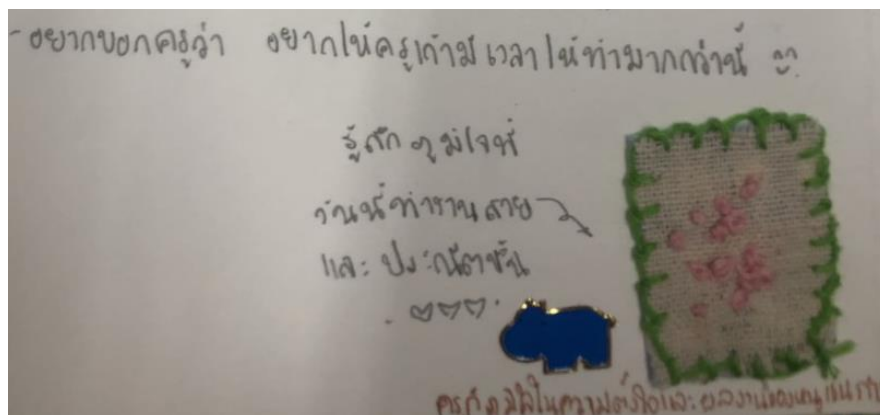 - อยากบอกครูว่า อยากให้ครูเก๋ามีเวลาให้ทำมากกว่านี้
รู้สึกภูมิใจที่
วันนี้ทำงานสวย
และประณีตขึ้น
ครูก็ภูมิใจในความตั้งใจและผลงานของหนู